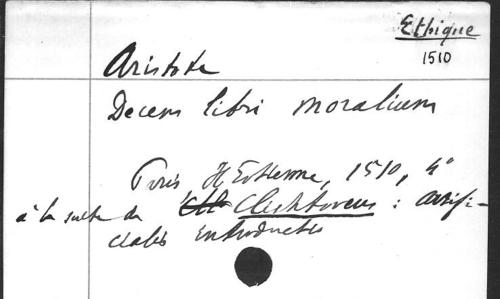 Ethique
1510
Aristote
Decem libri moralium
Paris H Estienne, 1510, 4°
à la suite de Clichtoveus : artifi-
cialis introductio